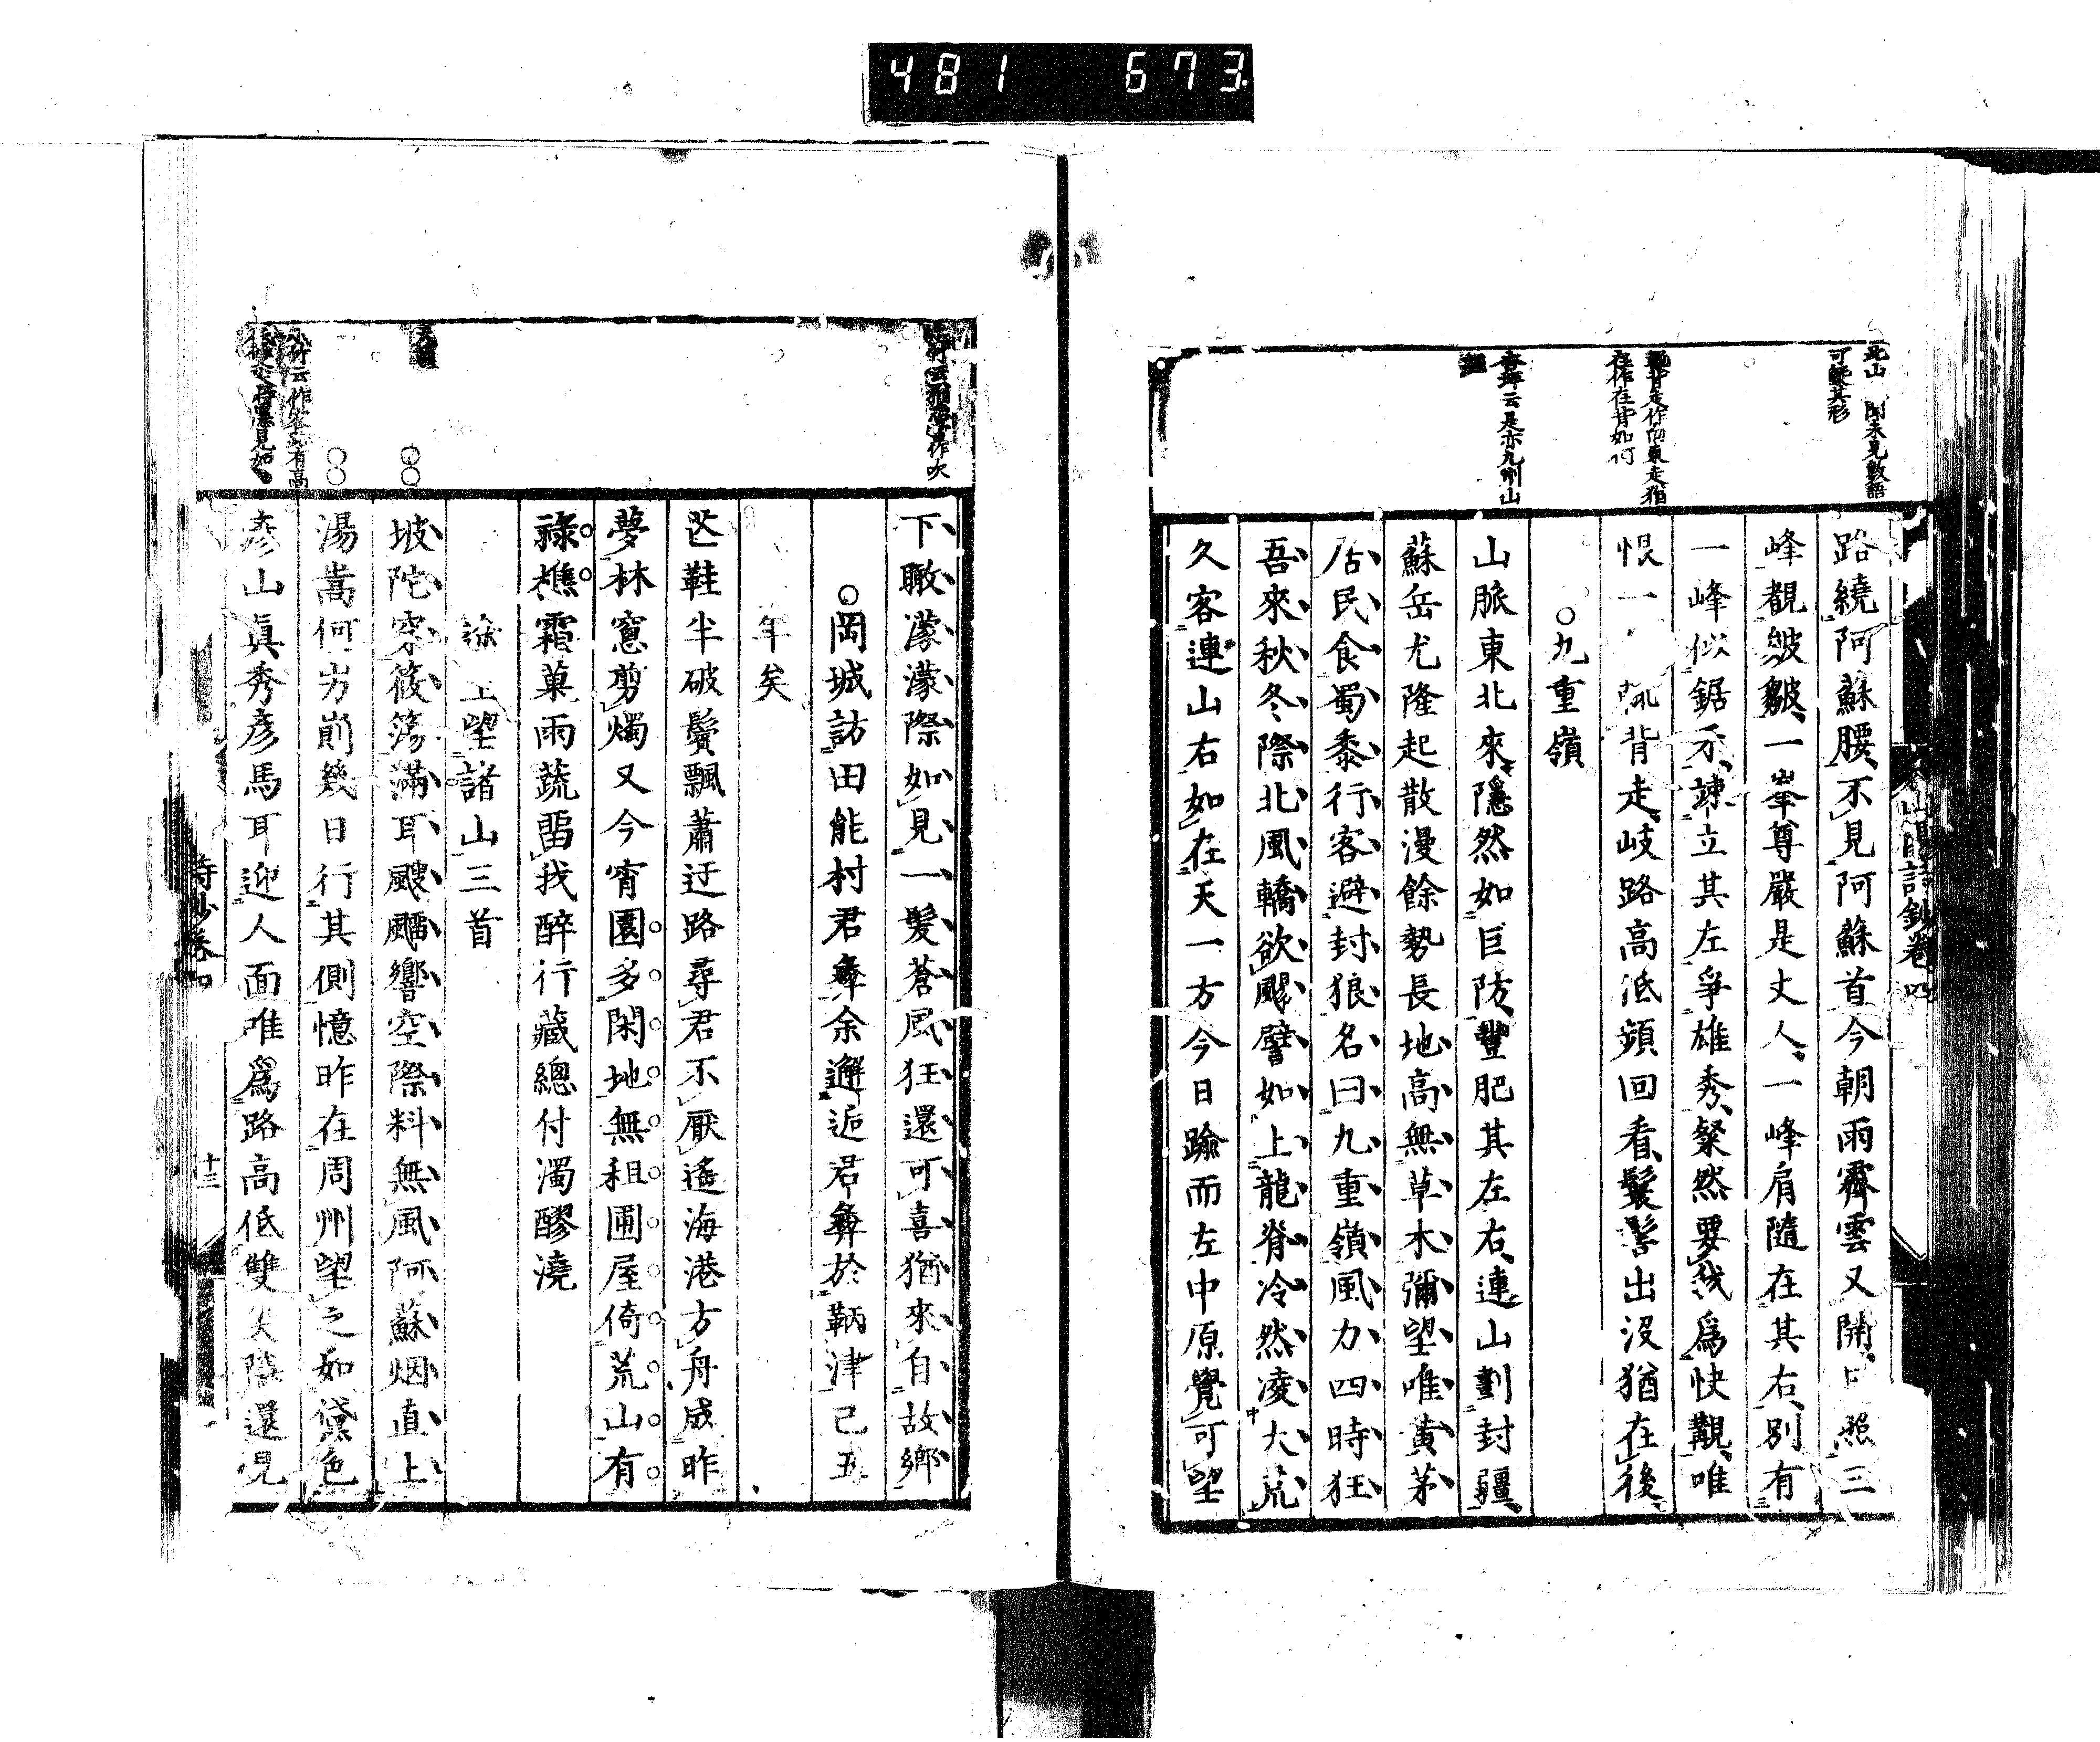 481 673
路繞阿蘇腰不見阿蘇首今朝雨霽雲又開日照三
峰觀皴皺一峯尊嚴是丈人一峰肩隨在其右別有
一峰似鋸牙竦立其左爭雄秀粲然要我爲快觀唯
恨一 背走岐路高低頻回看鬟髻出沒猶在後
○九重嶺
山脈東北來隱然如巨防豐肥其左右連山劃封疆
蘇岳尤隆起散漫餘勢長地高無草木彌望唯黃茅
居民食蜀黍行客避封狼名曰九重嶺風力四時狂
吾來秋冬際北風轎欲颺譬如上龍脊冷然凌大荒
久客連山右如在天一方今日踰而左中原覺可望
下瞰濛濛際如見一髮蒼風狂還可喜猶來自故鄉
○岡城訪田能村君彝余邂逅君彝於鞆津己五
年矣
芒鞋半破鬢飄蕭迂路尋君不厭遙海港方舟成昨
夢林窻剪燭又今宵園多閑地無租圃屋倚荒山有
祿樵霜菓雨蔬留我醉行藏總付濁醪澆
途上望諸山三首
坡陀穿篠簜滿耳颼飅響空際料無風阿蘇烟直上
湯嵩何岃崱幾日行其側憶昨在周州望之如黛色
彥山眞秀彥馬耳迎人面唯爲路高低雙尖隱還見
山陽詩鈔卷四
詩鈔卷四
十三
可
在作在背如何
杏坪云是亦九州山